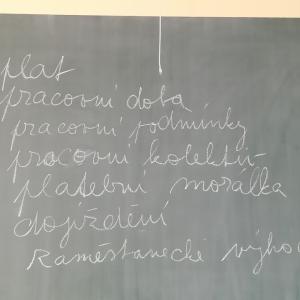 plat
pracovní doba
pracovní podmínky
pracovní kolektiv
platební morálka
dojíždění
zaměstnanecké výho